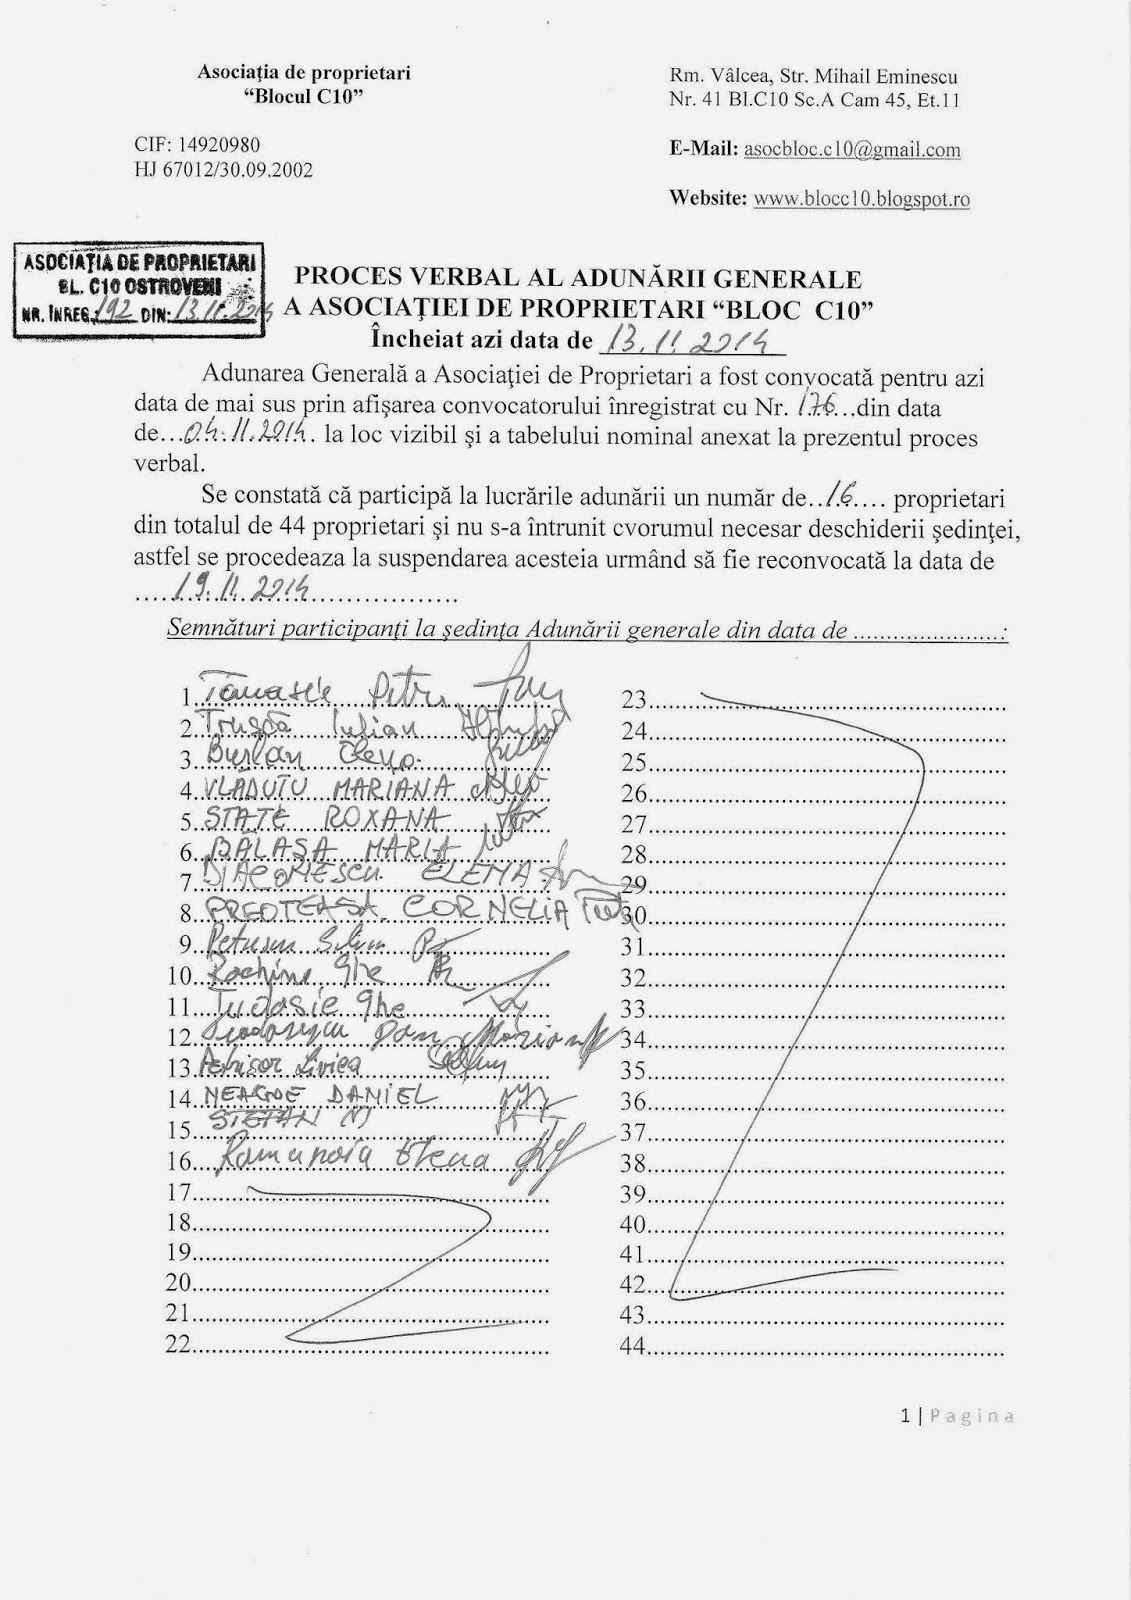 Asociaţia de proprietari
“Blocul C10”
CIF: 14920980
HJ 67012/30.09.2002
Rm. Vâlcea, Str. Mihail Eminescu
Nr. 41 Bl.C10 Sc.A Cam 45, Et.11
E-Mail: asocbloc.c10@gmail.com
Website: www.blocc10.blogspot.ro
ASOCIAŢIA DE PROPRIETARI
BL. C10 OSTROVENI
NR. ÎNREG. 192 DIN: 13.11.2014
PROCES VERBAL AL ADUNĂRII GENERALE
A ASOCIAŢIEI DE PROPRIETARI “BLOC C10”
Încheiat azi data de 13.11.2014
Adunarea Generală a Asociaţiei de Proprietari a fost convocată pentru azi
data de mai sus prin afişarea convocatorului înregistrat cu Nr. 176...din data
de...04.11.2014. la loc vizibil şi a tabelului nominal anexat la prezentul proces
verbal.
Se constată că participă la lucrările adunării un număr de..16.... proprietari
din totalul de 44 proprietari şi nu s-a întrunit cvorumul necesar deschiderii şedinţei,
astfel se procedeaza la suspendarea acesteia urmând să fie reconvocată la data de
....19.11.2014..................
Semnături participanţi la şedinţa Adunării generale din data de ......................:
1. Tănasie Petru
2. Trușcă Iulian
3. Burlan Elena
4. VLĂDUTU MARIANA
5. STATE ROXANA
6. BĂLAȘA MARIA
7. DIACONESCU ELENA
8. PREOTEASA CORNELIA
9. Petrescu
10. Ghe
11. Tudosie Ghe
12. Teodorescu Dan Marian
13. Petrisor Livica
14. NEAGOE DANIEL
15. STEFAN M
16. Elena
17
18
19
20
21
22
23
24
25
26
27
28
29
30
31
32
33
34
35
36
37
38
39
40
41
42
43
44
1 | Pagina